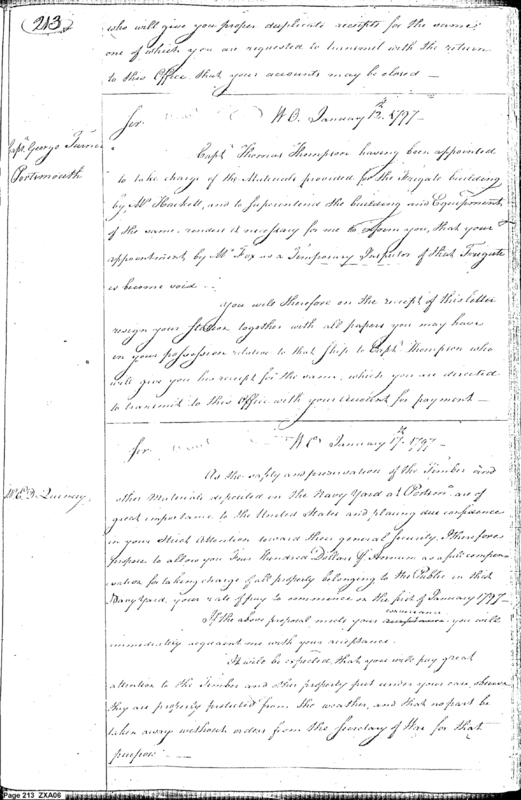 213
who will give you proper duplicate receipts for the same;
one of which you are requested to transmit with the return
to this Office that your accounts may be closed —
Sir. W.O. January 12th 1797 —
Capt. George Turner
Portsmouth
Capt. Thomas Thompson having been appointed
to take charge of the Materials provided for the Frigate building
by Mr Hackett, and to superintend the building and Equipment
of the same, renders it necessary for me to inform you, that your
appointment by Mr Fox as a Temporary Inspector of that Frigate
is become void —
You will therefore on the receipt of this letter
resign your Station together with all papers you may have
in your possession relative to that Ship to Capt. Thompson who
will give you his receipt for the same, which you are directed
to transmit to this Office with your Account for payment —
Sir W.O. January 17th 1797 —
Mr E. D. Quincy,
As the safety and preservation of the Timber and
other Materials deposited in the Navy Yard at are of
great importance to the United States and placing due confidence
in your Strict Attention toward their general security, I therefore
propose to allow you Four Hundred Dollars Annum as a full compen-
sation for taking charge of all property belonging to the Public in that
Navy Yard, your rate of pay to commence on the first of January 1797 —
concurrence
If the above proposal meets your acceptance you will
immediately acquaint me with your acceptance.
It will be expected, that you will pay great
attention to the Timber and other property put under your care,
they are properly protected from the weather, and that no part be
taken away without orders from the Secretary of War for that
purpose —
Page 213 ZXA06